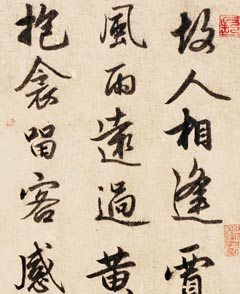 故人相逢賈
風雨遠過黄
抱衾留客感